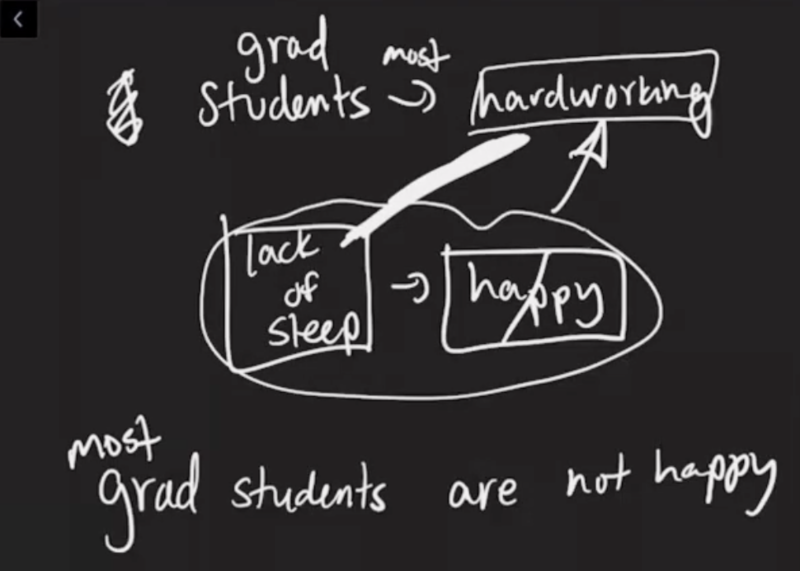 grad most
students → hardworking
lack
of
sleep → happy
most
grad students are not happy